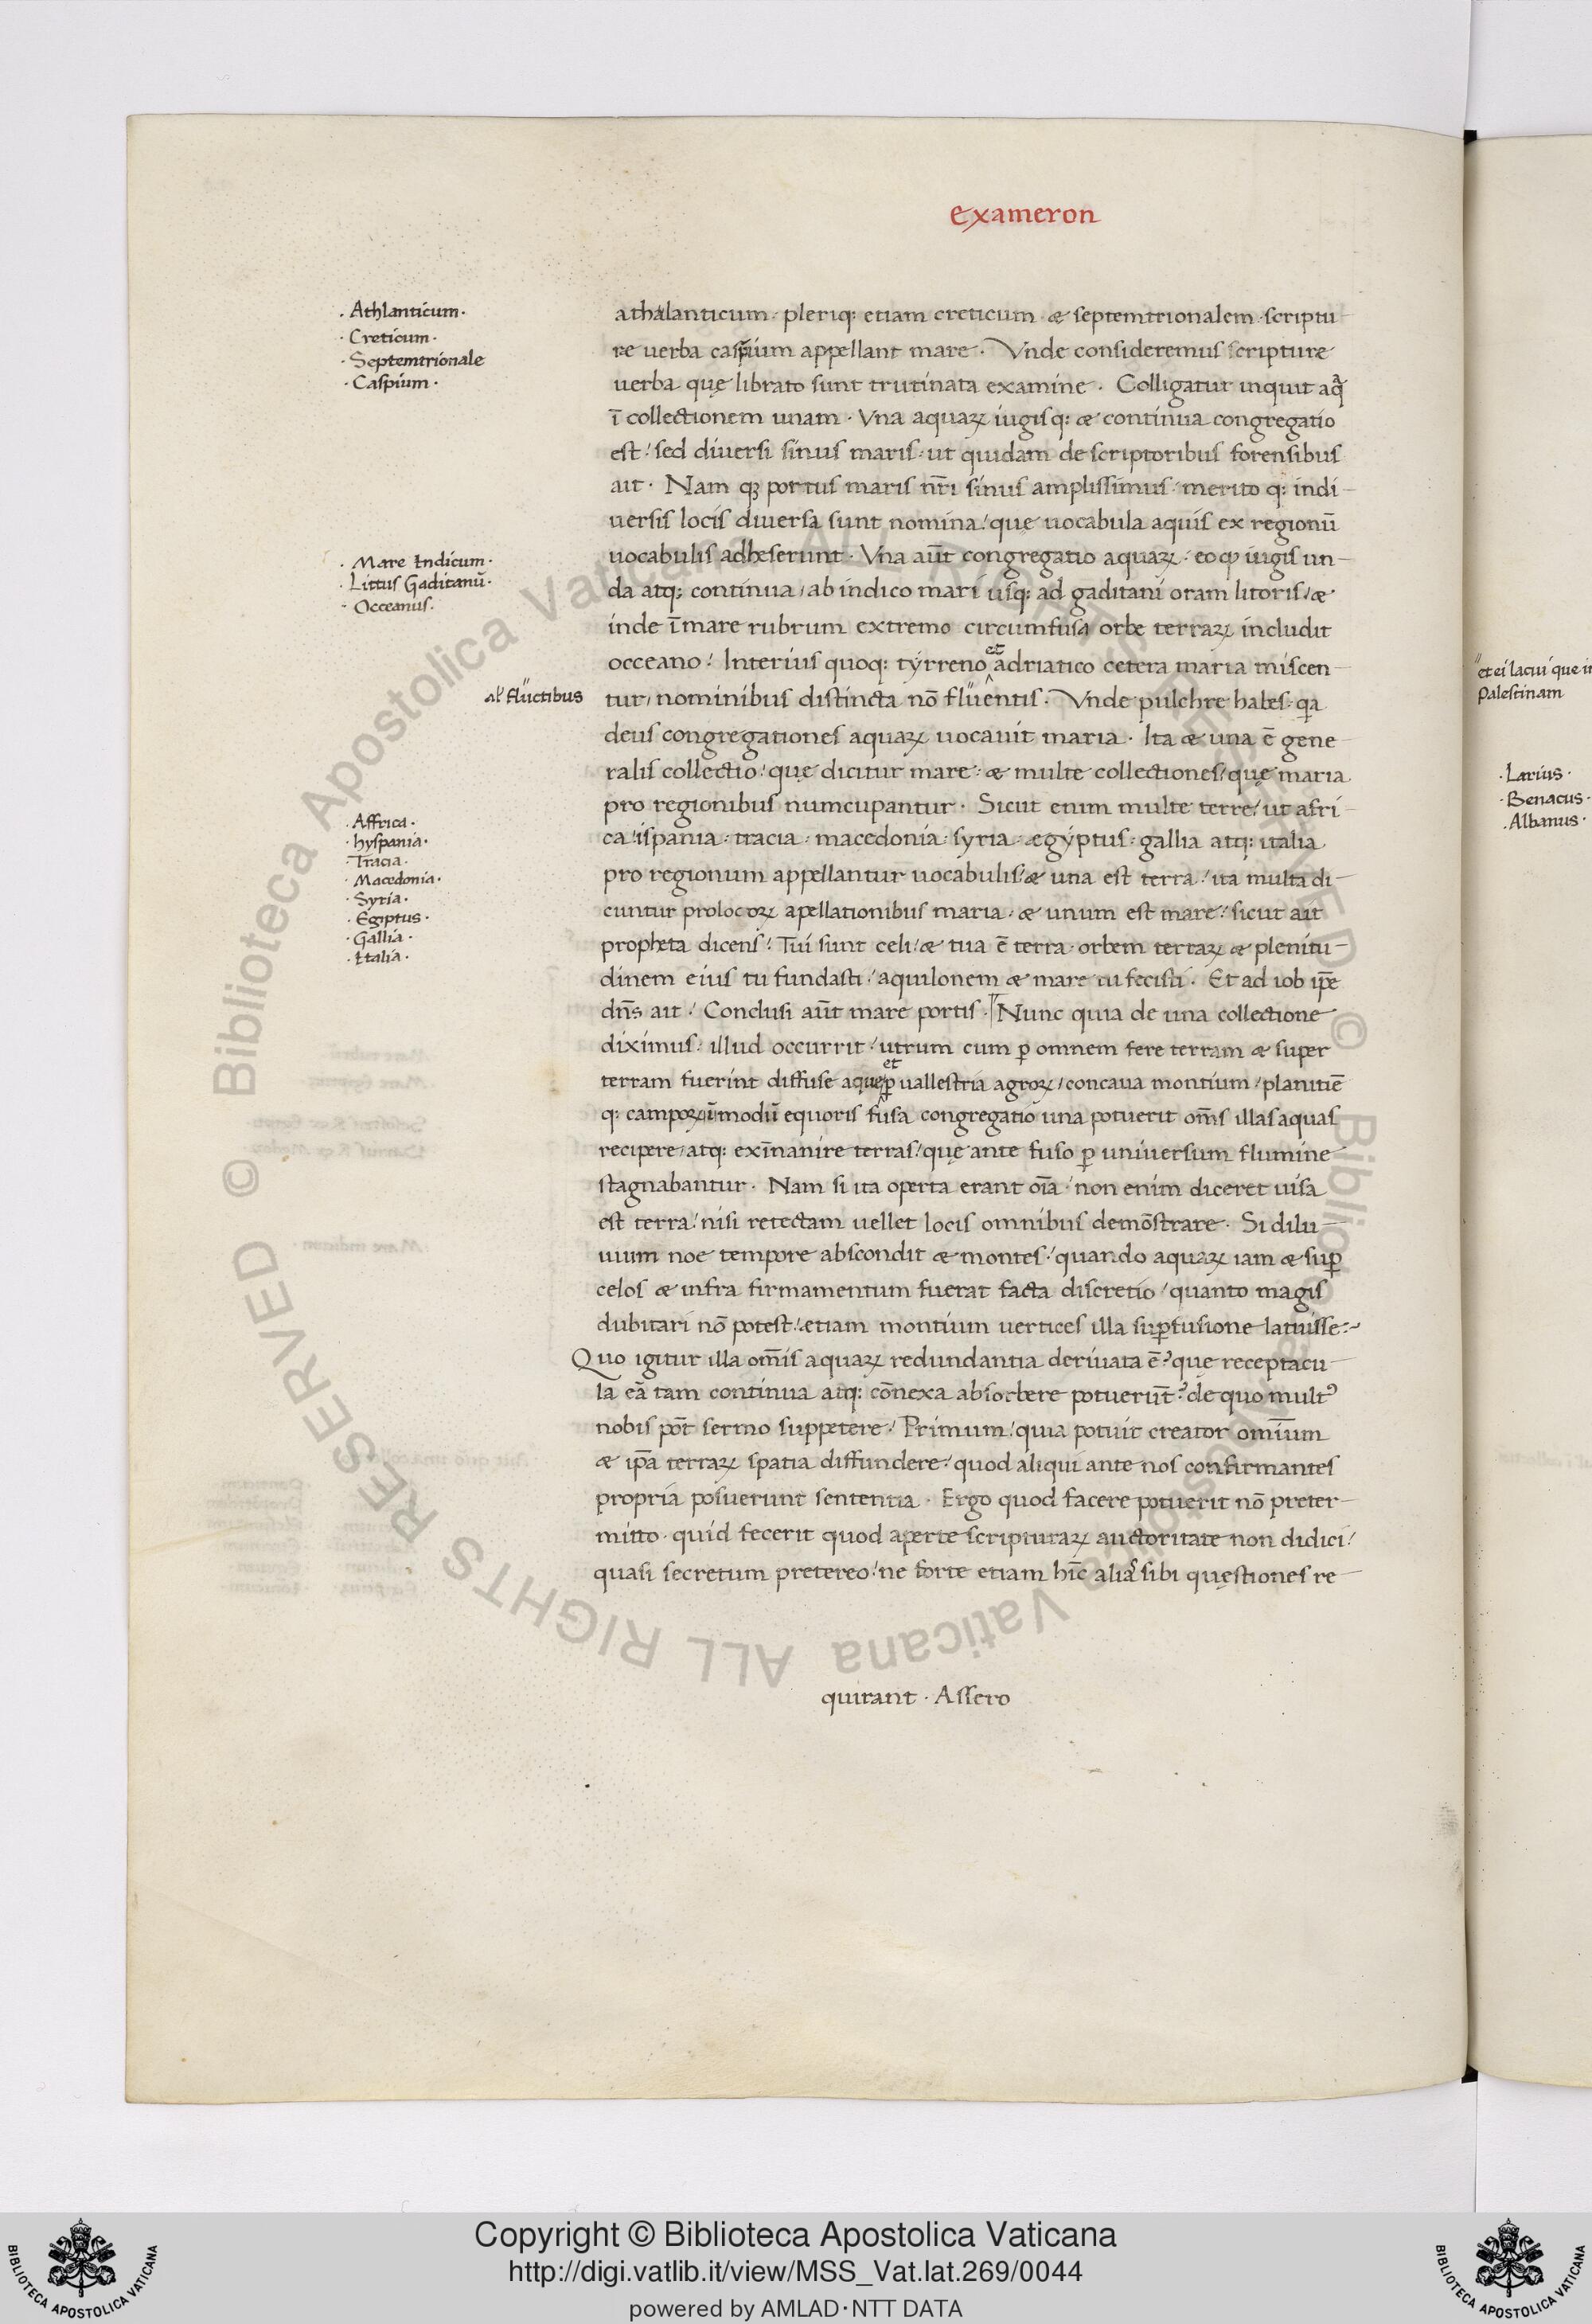 Exameron
· Athlanticum ·
· Creticum ·
· Septemtrionale
· Caspium ·
athalanticum · pleriq: etiam creticum · æ septemtrionalem · scriptu-
re uerba caspium appellant mare · Vnde consideremus scripture
uerba quę librato sunt trutinata examine · Colligatur inquit aq̃
ī collectionem unam · Vna aquaꝝ iugisq: æ continua congregatio
est / sed diuersi sinus maris · ut quidam de scriptoribus forensibus
ait · Nam qꝫ portus maris nr̄i sinus amplissimus · merito q: indi-
uersis locis diuersa sunt nomina / quę uocabula aquis ex regionū
uocabulis adheserunt · Vna aūt congregatio aquaꝝ · eo qp iugis un-
da atq; continua / ab indico mari usq: ad gaditani oram litoris / æ
inde ī mare rubrum extremo circumfusa orbe terraꝝ includit
occeano / Interius quoq: tyrreno et adriatico cetera maria miscen-
tur / nominibus distincta nō fluentis · Vnde pulchre habes · qa
deus congregationes aquaꝝ uocauit maria · Ita æ una ē gene-
ralis collectio / quę dicitur mare · æ multe collectiones / quę maria
pro regionibus numcupantur · Sicut enim multe terre / ut afri-
ca / ispania · tracia · macedonia · syria · ægyptus · gallia atq: italia
pro regionum appellantur uocabulis / æ una est terra / ita multa di-
cuntur prolocoꝝ apellationibus maria · æ unum est mare / sicut ait
propheta dicens / Tui sunt celi / æ tua ē terra · orbem terraꝝ æ plenitu-
dinem eius tu fundasti / aquilonem æ mare tu fecisti · Et ad iob ip̄e
dn̄s ait / Conclusi aūt mare portis · Nunc quia de una collectione
diximus · illud occurrit / utrum cum ꝑ omnem fere terram æ super
terram fuerint diffuse aque et ꝑ uallestria agroꝝ / concaua montium / planitiē
q: campoꝝ ī modū equoris fusa congregatio una potuerit om̄s illas aquas
recipere / atq: exīnanire terras / quę ante fuso ꝑ uniuersum flumine
stagnabantur · Nam si ita operta erant oīa / non enim diceret uisa
est terra / nisi retectam uellet locis omnibus demōstrare · Si dilu-
uium noe tempore abscondit æ montes / quando aquaꝝ iam æ suꝑ
celos æ infra firmamentum fuerat facta discretio / quanto magis
dubitari nō potest / etiam montium uertices illa suꝑfusione latuisse:~
Quo igitur illa om̄is aquaꝝ redundantia deriuata ē? quę receptacu-
la eā tam continua atq: cōnexa absorbere potuerūt? de quo multꝰ
nobis pōt sermo suppetere / Primum / quia potuit creator omīum
æ ip̄a terraꝝ spatia diffundere / quod aliqui ante nos confirmantes
propria posuerunt sententia · Ergo quod facere potuerit nō preter-
mitto · quid fecerit quod aperte scripturaꝝ auctoritate non didici /
quasi secretum pretereo / ne forte etiam hīc alias sibi quęstiones re-
quirant · Assero
· Mare Indicum ·
· Littus Gaditanū ·
· Occeanus ·
al' fluctibus
· Affrica ·
· hyspania ·
· Tracia ·
· Macedonia ·
· Syria ·
· Egiptus ·
· Gallia ·
· Italia ·
et ei lacui que in
Palestinam
· Larius ·
· Benacus ·
· Albanus ·
© Biblioteca Apostolica Vaticana ALL RIGHTS RESERVED
© Biblioteca Apostolica Vaticana ALL RIGHTS RESERVED
Copyright © Biblioteca Apostolica Vaticana
http://digi.vatlib.it/view/MSS_Vat.lat.269/0044
powered by AMLAD·NTT DATA
BIBLIOTECA APOSTOLICA VATICANA
BIBLIOTECA APOSTOLICA VATICANA